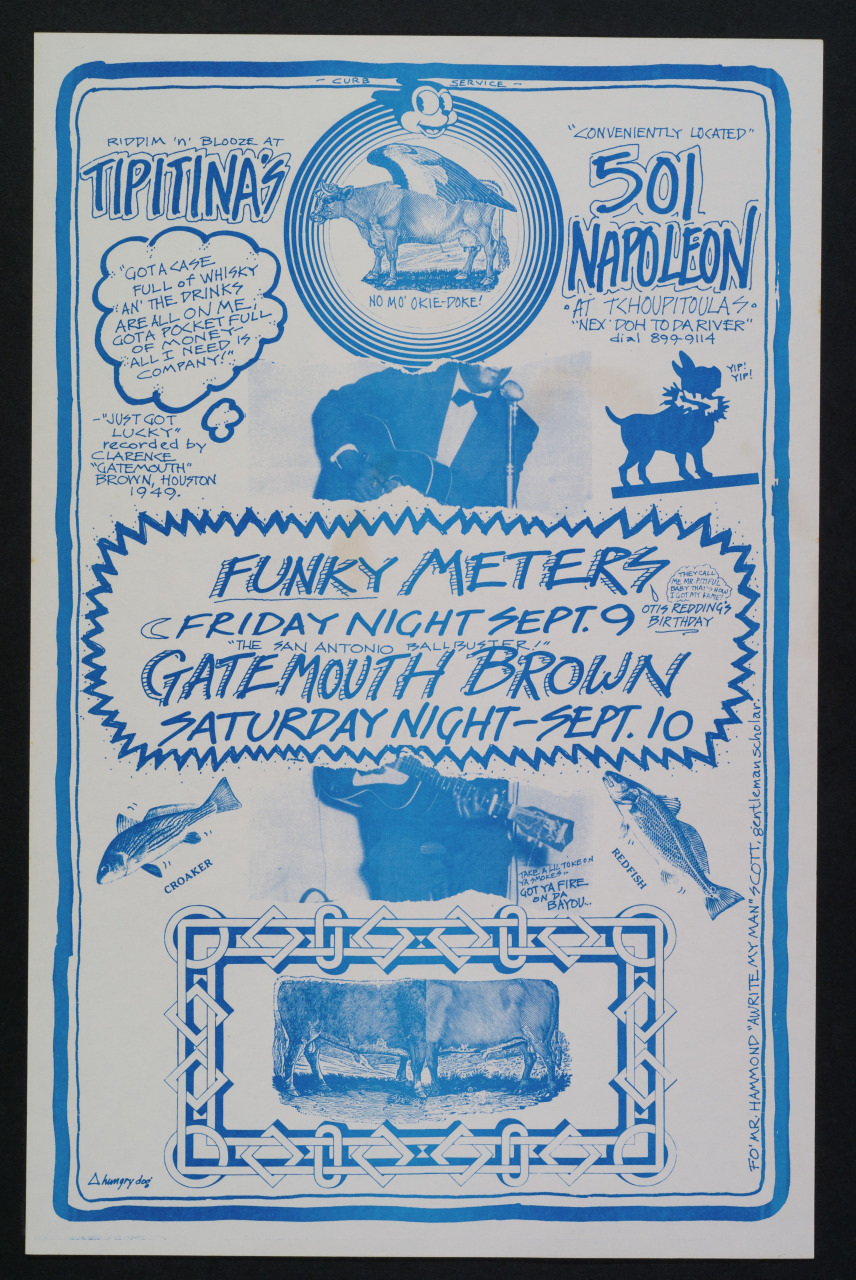 - CURB SERVICE -
RIDDIM 'n' BLOOZE AT
TIPITINA'S
"CONVENIENTLY LOCATED"
501
NAPOLEON
• AT TCHOUPITOULAS •
"NEX' DOH TO DA RIVER"
dial 899-9114
NO MO' OKIE-DOKE!
"GOT A CASE
FULL of WHISKY
AN' THE DRINKS
ARE ALL ON ME,
GOTA POCKET FULL
OF MONEY
ALL I NEED IS
COMPANY!"
-"JUST GOT
LUCKY"
recorded by
CLARENCE
"GATEMOUTH"
BROWN, HOUSTON
1949.
YIP!
YIP!
FUNKY METERS
FRIDAY NIGHT SEPT. 9
THEY CALL
ME MR. PITIFUL
BABY THAT'S HOW
I GOT MY FAME!
OTIS REDDING'S
BIRTHDAY
"THE SAN ANTONIO BALLBUSTER!"
GATEMOUTH BROWN
SATURDAY NIGHT-SEPT. 10
CROAKER
REDFISH
TAKE A LIL TOKE ON
YA SMOKES..
GOT YA FIRE
ON DA
BAYOU...
FO' MR. HAMMOND "AWRITE MY MAN" SCOTT, gentleman scholar.
hungry dog